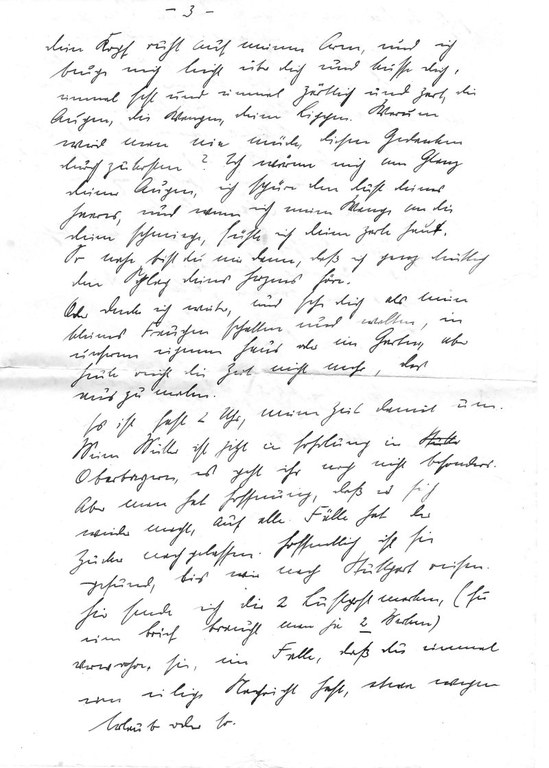 - 3 -
dein Kopf ruht auf meinem Arm, und ich
beuge mich leicht über dich und küsse dich,
einmal fest und einmal zärtlich und zart, die
Augen, die Wangen, deine Lippen. Warum
wird man nie müde, diesen Gedanken
durchzukosten? Ich wärme mich am Glanz
deiner Augen, ich spüre den Duft deines
Haares, und wenn ich meine Wange an die
deine schmiege, fühle ich deine zarte Haut.
So nahe bist du mir dann, daß ich ganz deutlich
den Schlag deines Herzens höre.
Oder denke ich weiter, und sehe dich als mein
kleines Frauchen schalten und walten, in
unserem eigenen Haus oder im Garten, aber
heute reicht die Zeit nicht mehr, das
auszumalen.
Es ist fast 2 Uhr, meine Zeit damit um.
Meine Mutter ist jetzt in Erholung in
Oberbayern, es geht ihr noch nicht besonders.
Aber man hat Hoffnung, daß es sich
wieder macht, auf alle Fälle hat der
Zucker nachgelassen. Hoffentlich ist sie
gesund, bis wir nach Stuttgart reisen.
Hier sende ich dir 2 Luftpostmarken, (für
einen Brief braucht man je 2 Marken)
verwahre sie, im Falle, daß du einmal
eine eilige Nachricht hast, etwa wegen
Urlaub oder so.